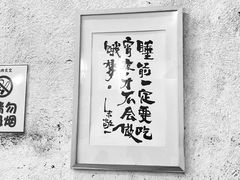 睡前一定要吃
宵夜才不会做
饿梦。
请勿
吸烟